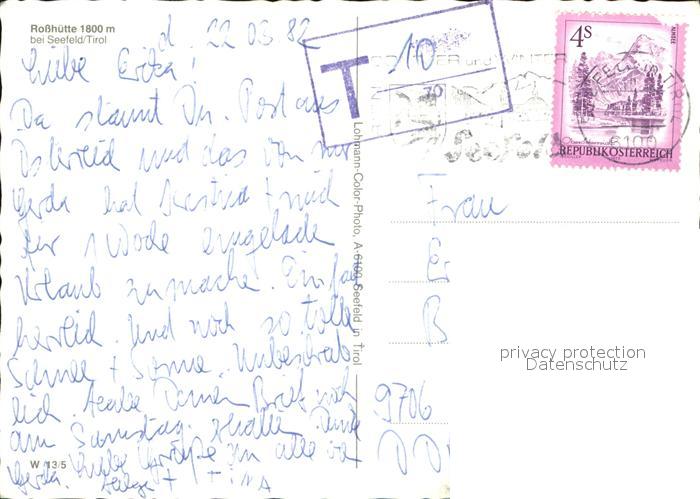 Roßhütte 1800 m
bei Seefeld/Tirol
d. 22 03 82
Liebe Erika!
Da staunst Du. Post aus
Österreich und das von mir
Gerda hat + mich
für 1 Woche eingeladen
Urlaub zu machen. Einfach
herrlich. Und noch so tolle
Schnee + Sonne. Unbeschreib
lich. Deinen Brief noch
am Samstag erhalten. Danke
Gerda. Liebe Grüße an alle von
Helga + TINA
W 13/5
Lohmann-Color-Photo, A-6100 Seefeld in Tirol
T 10
70
SOMMER und WINTER
Seefeld
SEEFELD in TIROL
6100
4S
ALMSEE
REPUBLIK ÖSTERREICH
Frau
E
B
9706
DD
privacy protection
Datenschutz